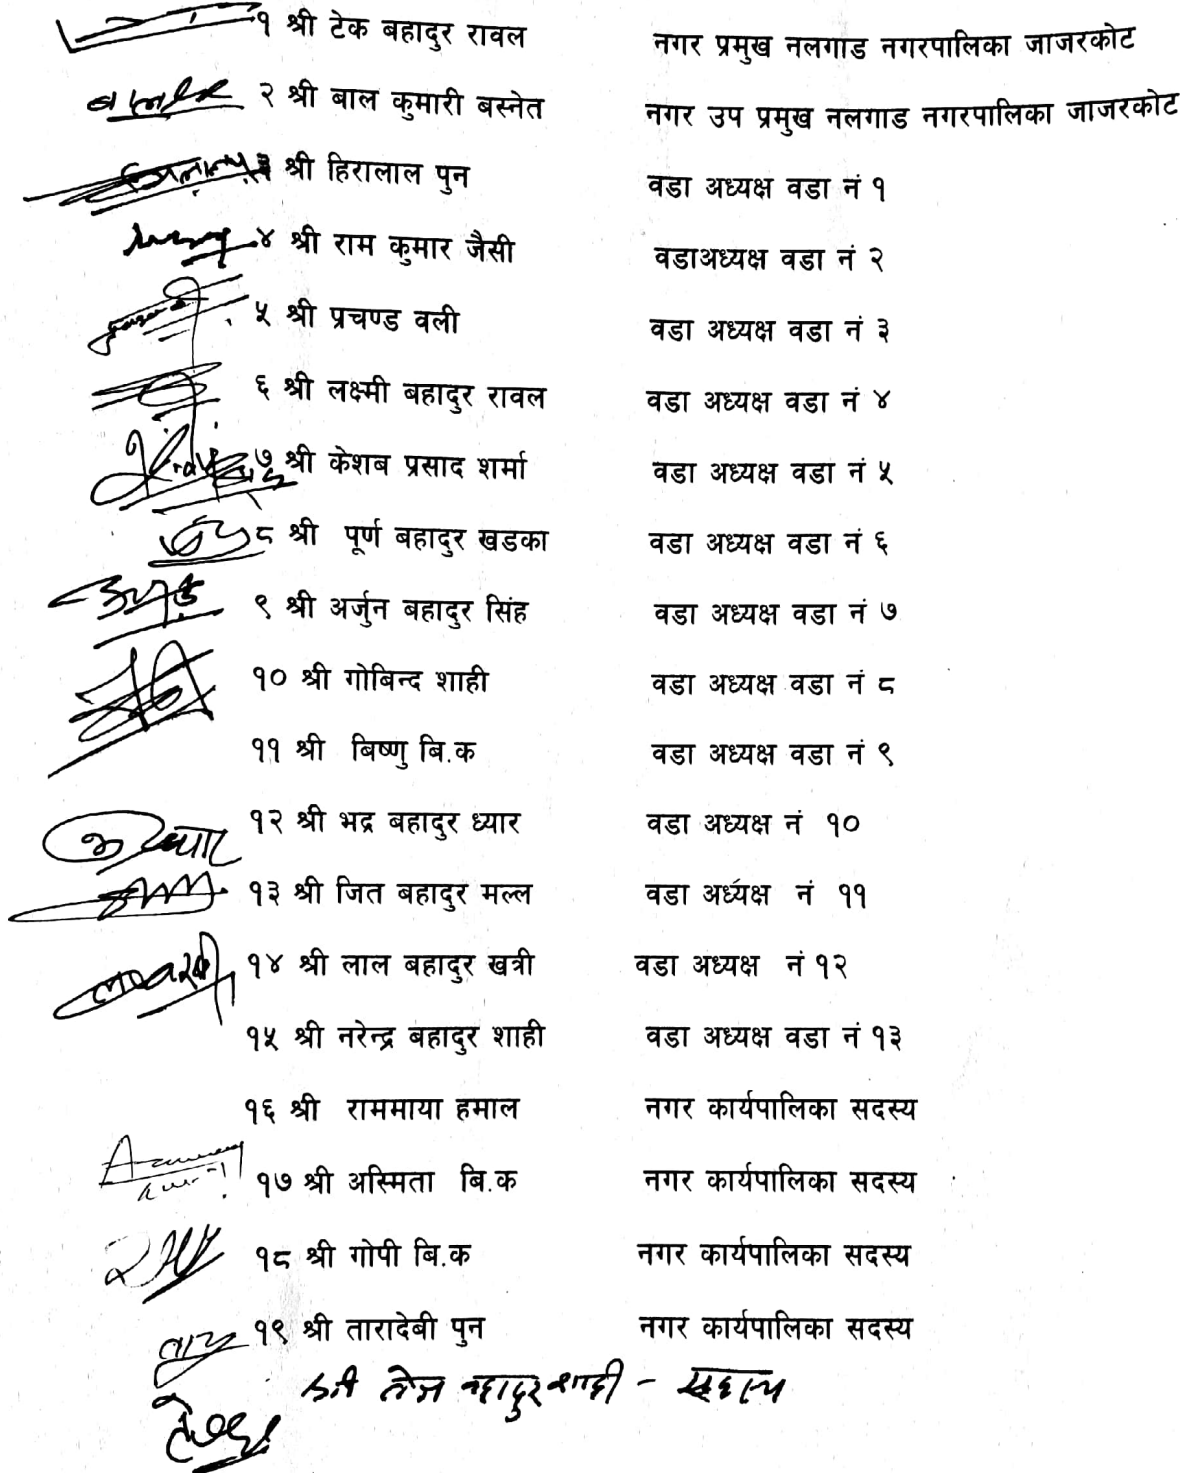 १ श्री टेक बहादुर रावल नगर प्रमुख नलगाड नगरपालिका जाजरकोट
२ श्री बाल कुमारी बस्नेत नगर उप प्रमुख नलगाड नगरपालिका जाजरकोट
३ श्री हिरालाल पुन वडा अध्यक्ष वडा नं १
४ श्री राम कुमार जैसी वडाअध्यक्ष वडा नं २
५ श्री प्रचण्ड वली वडा अध्यक्ष वडा नं ३
६ श्री लक्ष्मी बहादुर रावल वडा अध्यक्ष वडा नं ४
७ श्री केशब प्रसाद शर्मा वडा अध्यक्ष वडा नं ५
८ श्री पूर्ण बहादुर खडका वडा अध्यक्ष वडा नं ६
९ श्री अर्जुन बहादुर सिंह वडा अध्यक्ष वडा नं ७
१० श्री गोबिन्द शाही वडा अध्यक्ष वडा नं ८
११ श्री बिष्णु बि.क वडा अध्यक्ष वडा नं ९
१२ श्री भद्र बहादुर ध्यार वडा अध्यक्ष नं १०
१३ श्री जित बहादुर मल्ल वडा अर्ध्यक्ष नं ११
१४ श्री लाल बहादुर खत्री वडा अध्यक्ष नं १२
१५ श्री नरेन्द्र बहादुर शाही वडा अध्यक्ष वडा नं १३
१६ श्री राममाया हमाल नगर कार्यपालिका सदस्य
१७ श्री अस्मिता बि.क नगर कार्यपालिका सदस्य
१८ श्री गोपी बि.क नगर कार्यपालिका सदस्य
१९ श्री तारादेबी पुन नगर कार्यपालिका सदस्य
श्री तेज बहादुर शाही - सदस्य